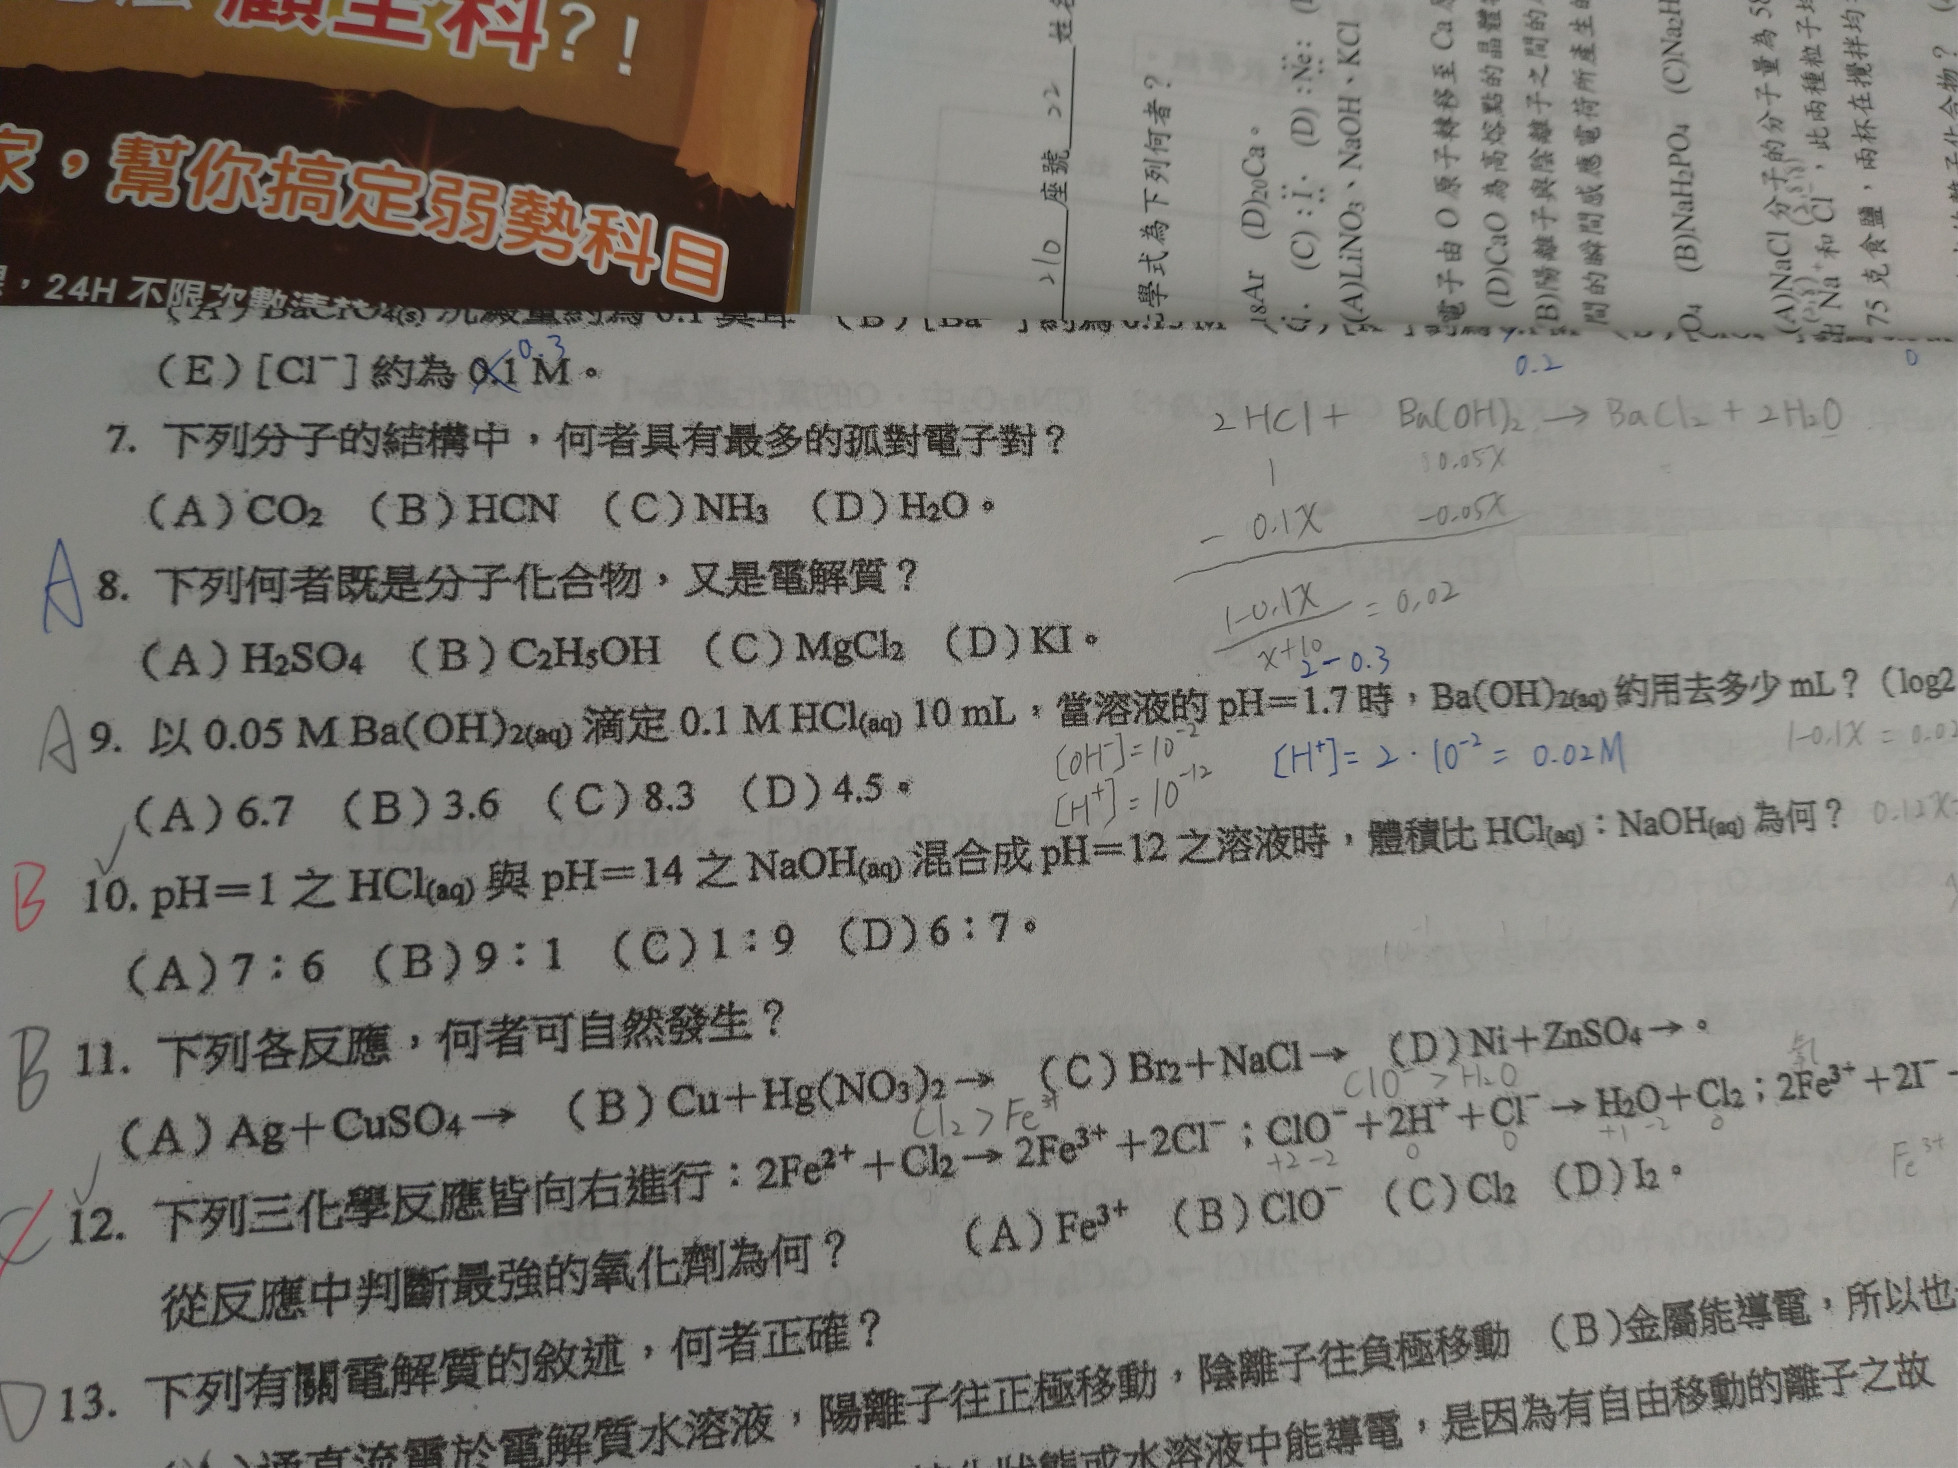 顧全科?!
家，幫你搞定弱勢科目
，24H 不限次數
210 座號 22 姓名
學式為下列何者？
18Ar (D)20Ca。
(C):I. (D):Ne:
(A)LiNO3、NaOH、KCl
電子由 O 原子轉移至 Ca
(D)CaO 為高熔點的晶體
(B)陽離子與陰離子之間的
間的瞬間感應電荷所產生的
(B)NaH2PO4 (C)Na2H
(A)NaCl 分子的分子量為 58
出 Na⁺ 和 Cl⁻，此兩種粒子均
75 克食鹽，兩杯在攪拌均
(E)[Cl⁻]約為 0.1 M。
0.3
0.2
0
7. 下列分子的結構中，何者具有最多的孤對電子對？
(A)CO2 (B)HCN (C)NH3 (D)H2O。
2HCl + Ba(OH)2 → BaCl2 + 2H2O
1 0.05X
- 0.1X -0.05X
1-0.1X = 0.02
x+10
A 8. 下列何者既是分子化合物，又是電解質？
(A)H2SO4 (B)C2H5OH (C)MgCl2 (D)KI。
2-0.3
A 9. 以 0.05 M Ba(OH)2(aq) 滴定 0.1 M HCl(aq) 10 mL，當溶液的 pH＝1.7 時，Ba(OH)2(aq) 約用去多少 mL？（log2
[OH⁻]=10⁻² [H⁺]= 2·10⁻² = 0.02M 1-0.1X = 0.02
[H⁺]=10⁻¹²
(A)6.7 (B)3.6 (C)8.3 (D)4.5。
0.12X
B 10. pH＝1 之 HCl(aq) 與 pH＝14 之 NaOH(aq) 混合成 pH＝12 之溶液時，體積比 HCl(aq)：NaOH(aq) 為何？
(A)7：6 (B)9：1 (C)1：9 (D)6：7。
B 11. 下列各反應，何者可自然發生？
(A)Ag＋CuSO4→ (B)Cu＋Hg(NO3)2→ (C)Br2＋NaCl→ (D)Ni＋ZnSO4→。
Cl2 > Fe³⁺ ClO⁻ > H2O 氧
C 12. 下列三化學反應皆向右進行：2Fe²⁺＋Cl2→2Fe³⁺＋2Cl⁻；ClO⁻＋2H⁺＋Cl⁻→H2O＋Cl2；2Fe³⁺＋2I⁻
+2 -2 0 0 +1 -2 0
Fe³⁺
從反應中判斷最強的氧化劑為何？ (A)Fe³⁺ (B)ClO⁻ (C)Cl2 (D)I2。
D 13. 下列有關電解質的敘述，何者正確？
通直流電於電解質水溶液，陽離子往正極移動，陰離子往負極移動 (B)金屬能導電，所以也
狀態或水溶液中能導電，是因為有自由移動的離子之故